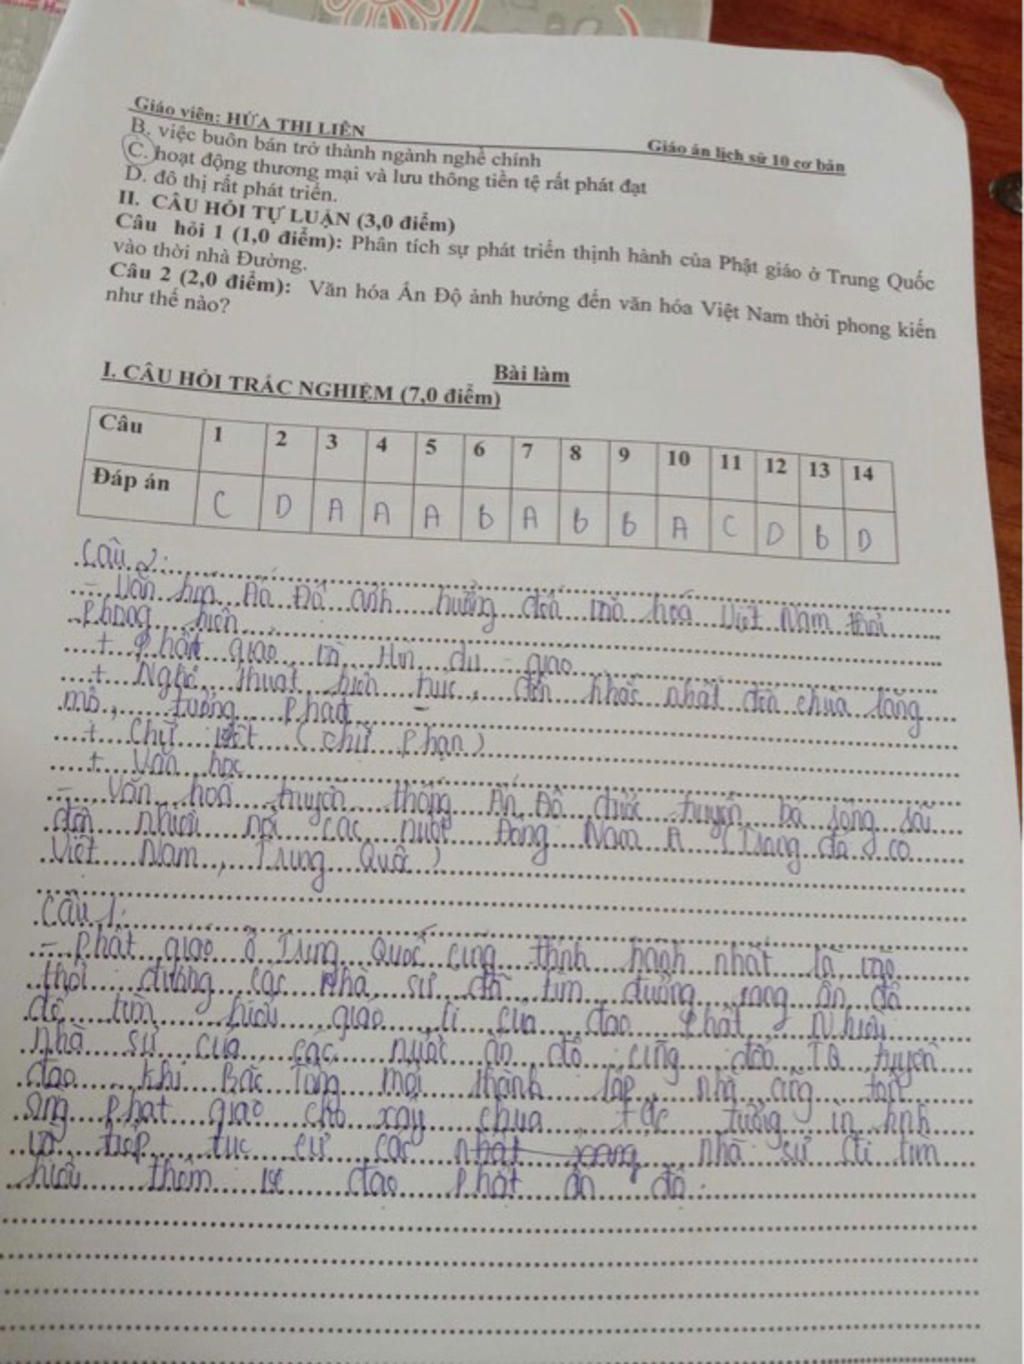 Giáo viên: HỨA THI LIÊN
Giáo án lịch sử 10 cơ bản
B. việc buôn bán trở thành ngành nghề chính
C. hoạt động thương mại và lưu thông tiền tệ rất phát đạt
D. đô thị rất phát triển.
II. CÂU HỎI TỰ LUẬN (3,0 điểm)
Câu hỏi 1 (1,0 điểm): Phân tích sự phát triển thịnh hành của Phật giáo ở Trung Quốc
vào thời nhà Đường.
Câu 2 (2,0 điểm): Văn hóa Ấn Độ ảnh hưởng đến văn hóa Việt Nam thời phong kiến
như thế nào?
Bài làm
I. CÂU HỎI TRẮC NGHIỆM (7,0 điểm)
Câu 1 2 3 4 5 6 7 8 9 10 11 12 13 14
Đáp án C D A A A B A B B A C D B D
Câu 2:
- Văn hoá Ấn Độ ảnh hưởng đến hoá Việt Nam thời
phong kiến
+ Phật giáo và Hin du - giáo
+ Nghệ thuật kiến trúc, nhất đến chùa lăng
mộ, tượng phật
+ Chữ viết (chữ Phạn)
+ Văn học
- Văn hoá truyền thống Ấn Độ được truyền bá
đến nhiều nơi các nước Đông Nam Á (Trong đó có
Việt Nam, Trung Quốc)
Câu 1:
- Phật giáo ở Trung Quốc cũng thịnh hành nhất là vào
thời đường các nhà sư đã tìm đường sang ấn độ
để tìm hiểu giáo lí của đạo phật, Nhiều
nhà sư của các nước ấn độ cũng đến TQ truyền
đạo. Khi Bắc Tống mới thành lập, nhà cũng tôn
phật giáo cho xây chùa, tạc tượng in kinh
và tiếp tục cử các nhà sư đi tìm
hiểu thêm đạo phật ấn độ.